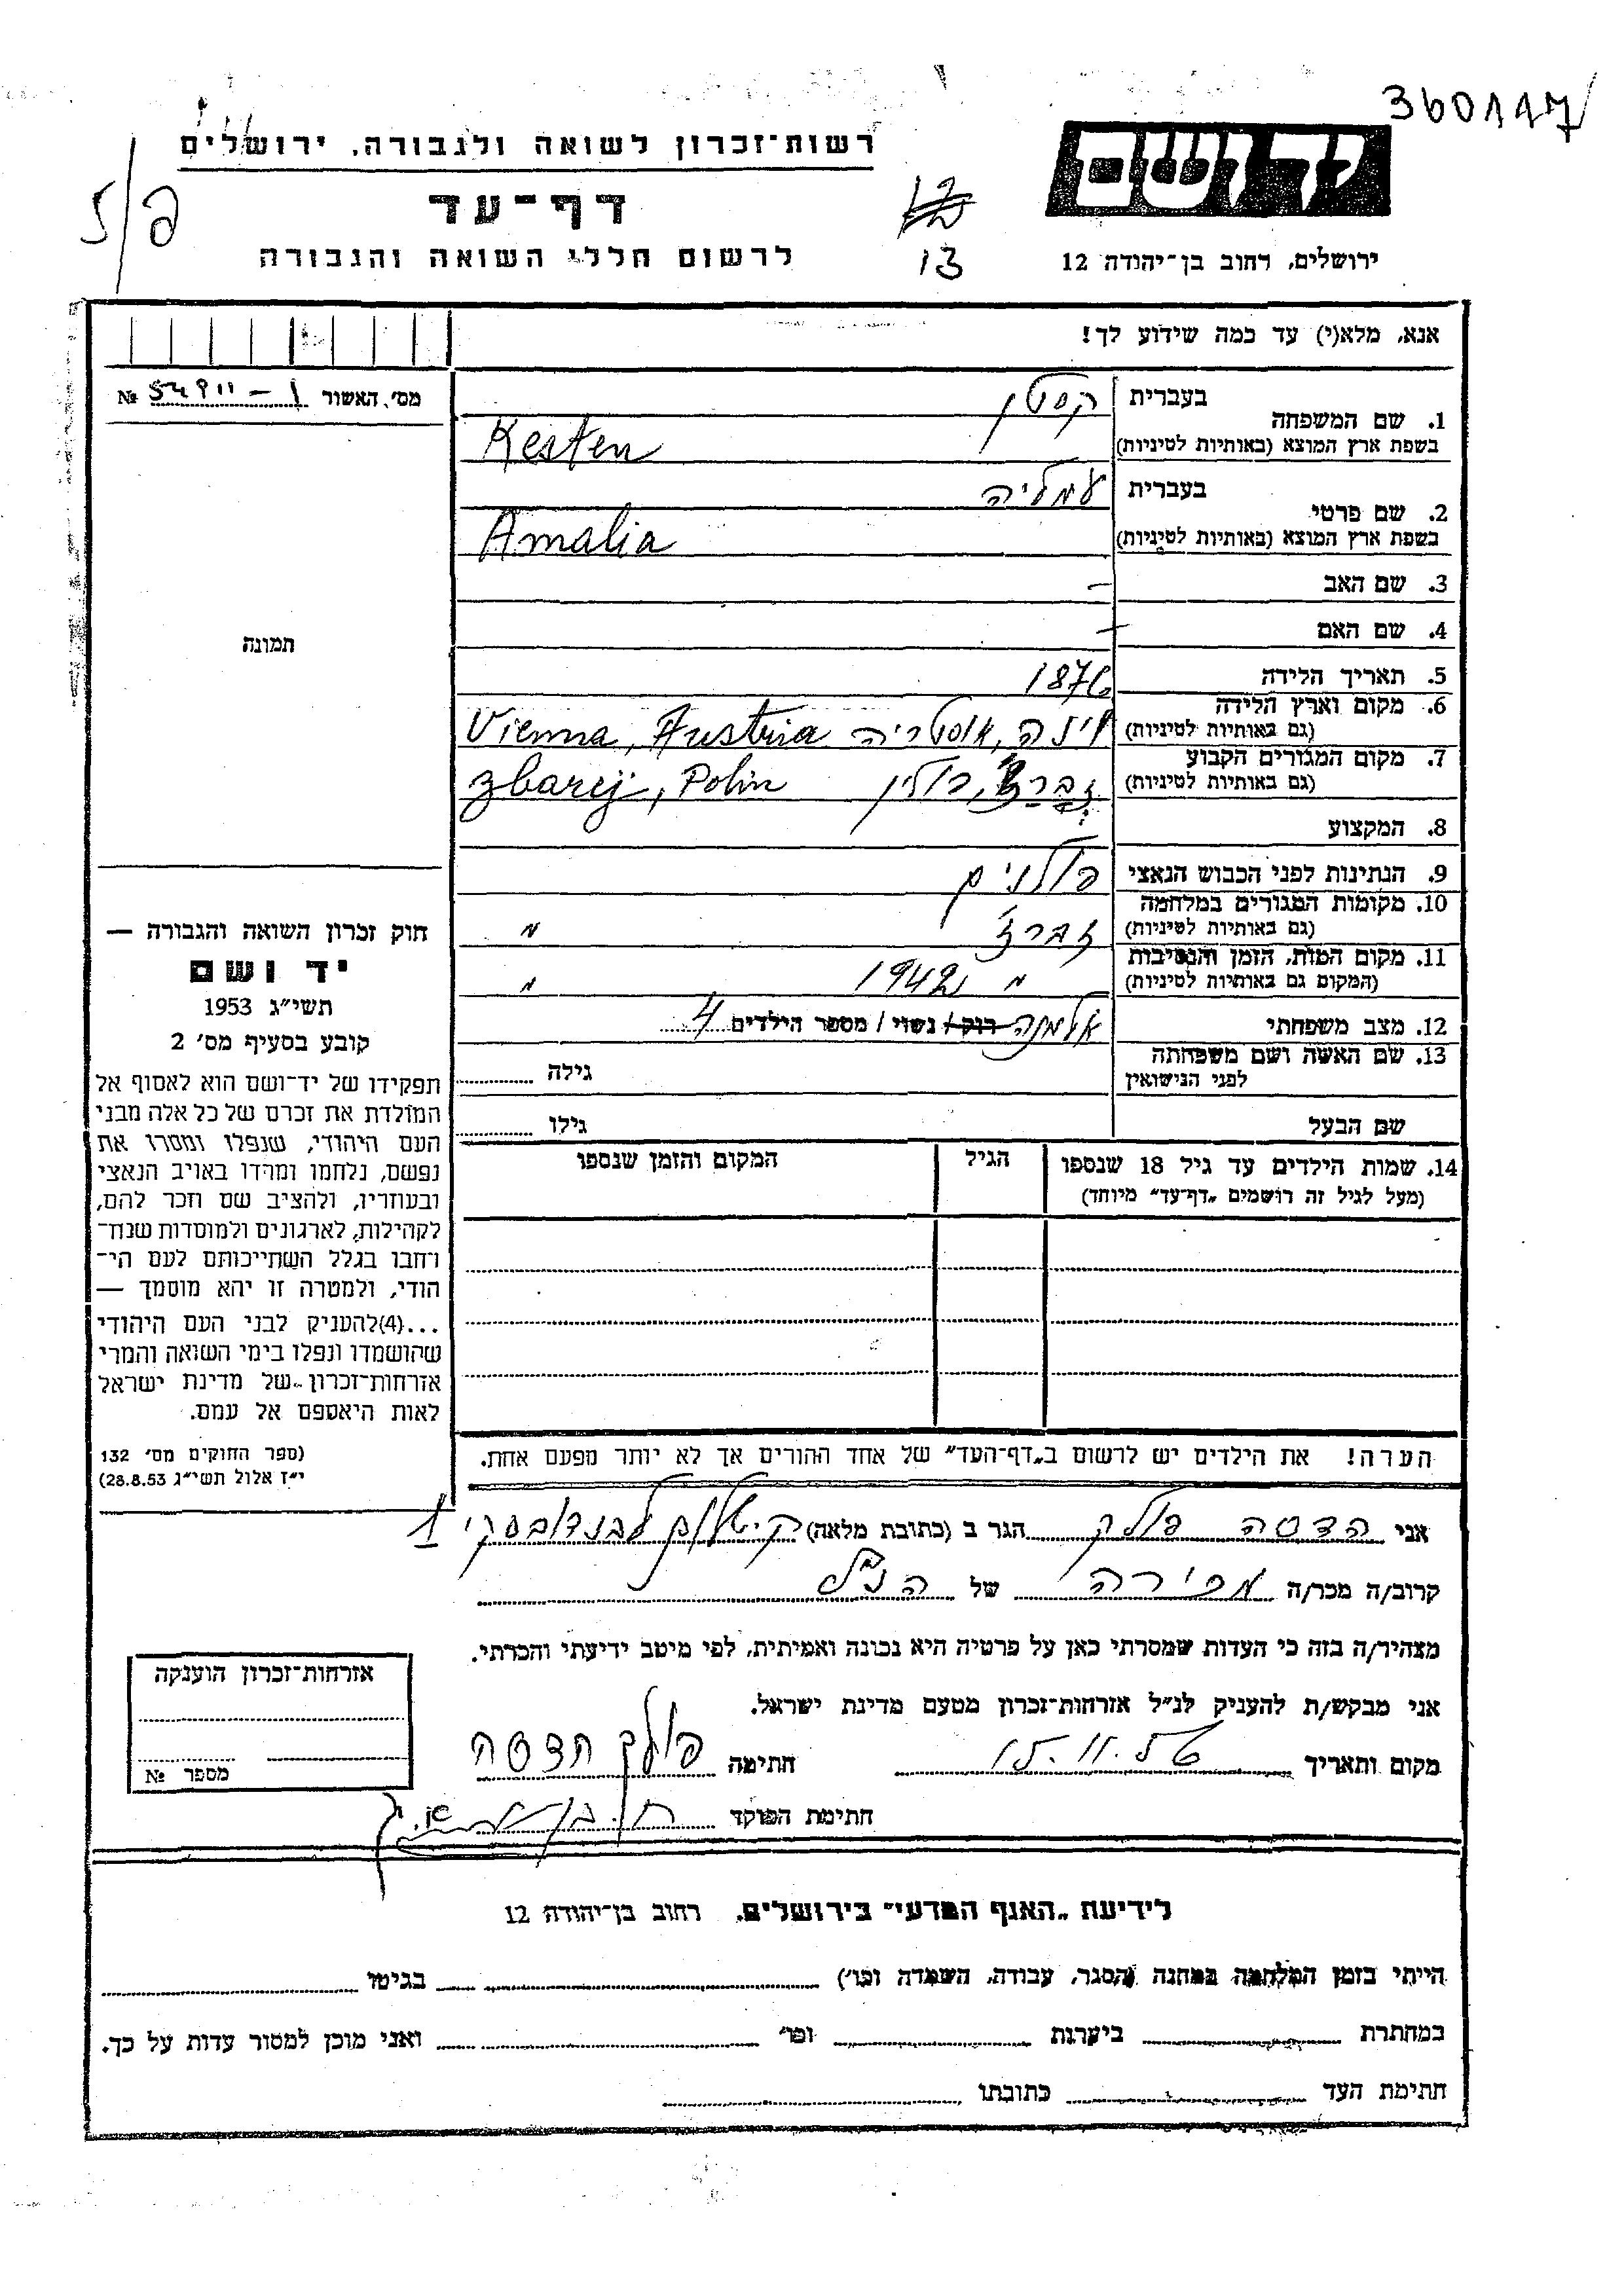 360117
יד ושם
רשות־זכרון לשואה ולגבורה, ירושלים
דף־עד
לרשום חללי השואה והגבורה
13
ירושלים, רחוב בן־יהודה 12
אנא, מלא(י) עד כמה שידוע לך!
מס', האשור № 54911-1
1. שם המשפחה
בעברית קסטן
בשפת ארץ המוצא (באותיות לטיניות) Kesten
2. שם פרטי
בעברית עמליה
בשפת ארץ המוצא (באותיות לטיניות) Amalia
3. שם האב –
4. שם האם –
תמונה
5. תאריך הלידה 1876
6. מקום וארץ הלידה
(גם באותיות לטיניות) וינה, אוסטריה Vienna, Austria
7. מקום המגורים הקבוע
(גם באותיות לטיניות) זברז', פולין Zbarej, Polin
8. המקצוע
9. הנתינות לפני הכבוש הנאצי פולנים
10. מקומות המגורים במלחמה
(גם באותיות לטיניות) זברז' "
11. מקום המות, הזמן והנסיבות
(המקום גם באותיות לטיניות) " 1942 "
12. מצב משפחתי אלמנה רוק / נשוי / מספר הילדים 4
13. שם האשה ושם משפחתה
לפני הנישואין
גילה
שם הבעל
גילו
14. שמות הילדים עד גיל 18 שנספו
(מעל לגיל זה רושמים „דף־עד" מיוחד)
הגיל
המקום והזמן שנספו
חוק זכרון השואה והגבורה —
יד ושם
תשי״ג 1953
קובע בסעיף מס' 2
תפקידו של יד־ושם הוא לאסוף אל
המולדת את זכרם של כל אלה מבני
העם היהודי, שנפלו ומסרו את
נפשם, נלחמו ומרדו באויב הנאצי
ובעוזריו, ולהציב שם וזכר להם,
לקהילות, לארגונים ולמוסדות שנח־
רחבו בגלל השתייכותם לעם הי־
הודי, ולמטרה זו יהא מוסמך —
...(4)להעניק לבני העם היהודי
שהושמדו ונפלו בימי השואה והמרי
אזרחות־זכרון של מדינת ישראל
לאות היאספם אל עמם.
(ספר החוקים מס' 132
י״ז אלול תשי״ג 28.8.53)
הערה! את הילדים יש לרשום ב„דף־העד" של אחד ההורים אך לא יותר מפעם אחת.
אני הדסה פולק הגר ב (כתובת מלאה)
קרוב/ה מכר/ה מכירה של הנ״ל
מצהיר/ה בזה כי העדות שמסרתי כאן על פרטיה היא נכונה ואמיתית, לפי מיטב ידיעתי והכרתי.
אני מבקש/ת להעניק לנ״ל אזרחות־זכרון מטעם מדינת ישראל.
מקום ותאריך 15.11.56 חתימה פולק הדסה
חתימת הפוקד
אזרחות־זכרון הוענקה
מספר №
לידיעת „האגף המדעי" בירושלים, רחוב בן־יהודה 12
הייתי בזמן המלחמה במחנה (הסגר, עבודה, השמדה וכו') בגיטו
במחתרת ביערות וכו' ואני מוכן למסור עדות על כך.
חתימת העד כתובתו